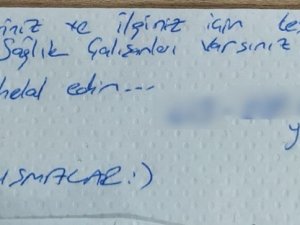 iniz ve ilginiz için te
Sağlık Çalışanları varsınız
helal edin...
y
IŞMALAR :)